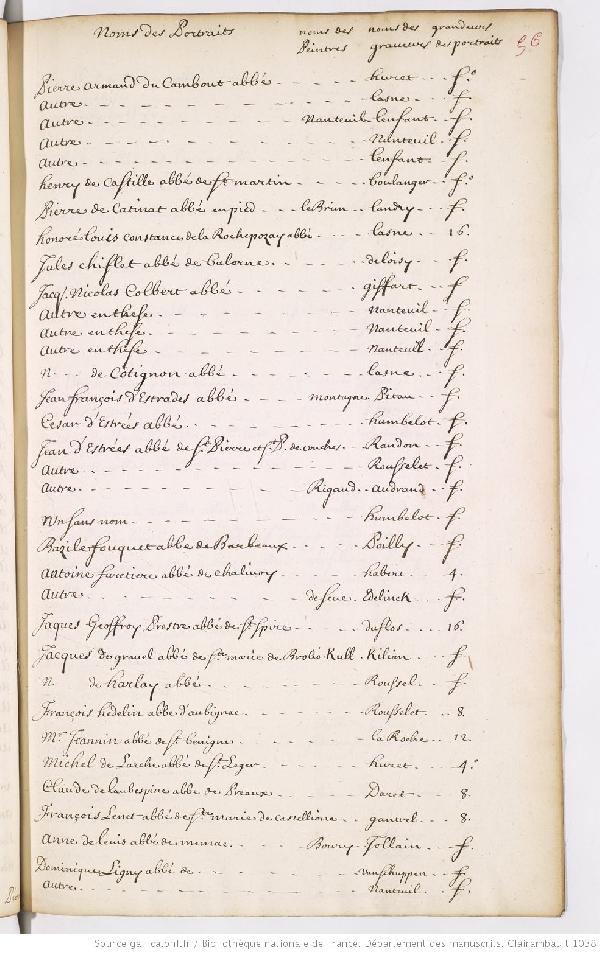 Noms des Portraits noms des noms des grandeurs
Peintres graveurs des portraits 56
Pierre armand du Cambout abbé huret f.º
Autre lasne f.
Autre Nanteuil lenfant f.
Autre Nanteuil f.
Autre lenfant f.
henry de Castille abbé de St martin boulanger f.º
Pierre de Catinat abbé en pied le Brun landry f.
honoré louis constance de la Rochepozay abbé lasne 16.
Jules chiflet abbé de balerne deloisy f.
Jacq. Nicolas Colbert abbé giffart f
Autre en these Nanteuil f.
Autre en these Nanteuil f.
Autre en these Nanteuil f.
N de Cotignon abbé lasne f.
Jean françois D'Estrades abbé montagne Pitau f.
Cesar d'Estrées abbé humbelot f.
Jean D'Estrées abbé de St. Pierre et St. P. de conches Randon f.
Autre Rousselet f.
Autre Rigaud Audrand f.
Un sans nom humbelot f.
Bazile fouquet abbé de Barbeaux Poilly f.
Antoine furetiere abbé de chalivoy habert 4.
Autre de seue Edelinck f.
Jaques Geoffroy Prestre abbé de St Spire duflos 16.
Jacques de gravel abbé de Ste marie de Brolio Kull Kilian f
N de harlay abbé Roussel f.
François hédelin abbé d'aubignac Rousselet 8.
Mr. Jeannin abbé de St benigne la Roche 12
Michel de Larche abbé de St. Leger huret 4.º
Claude de laubespine abbé de Preaux Daret 8.
François Lenet abbé de Ste marie de castellione ganiere 8.
Anne de levis abbé de menac Boury Jollain f.
Dominique Ligny abbé de vanschuppen f.
Autre Nanteuil f.
Source gallica.bnf.fr / Bibliothèque nationale de France. Département des manuscrits. Clairambault 1038